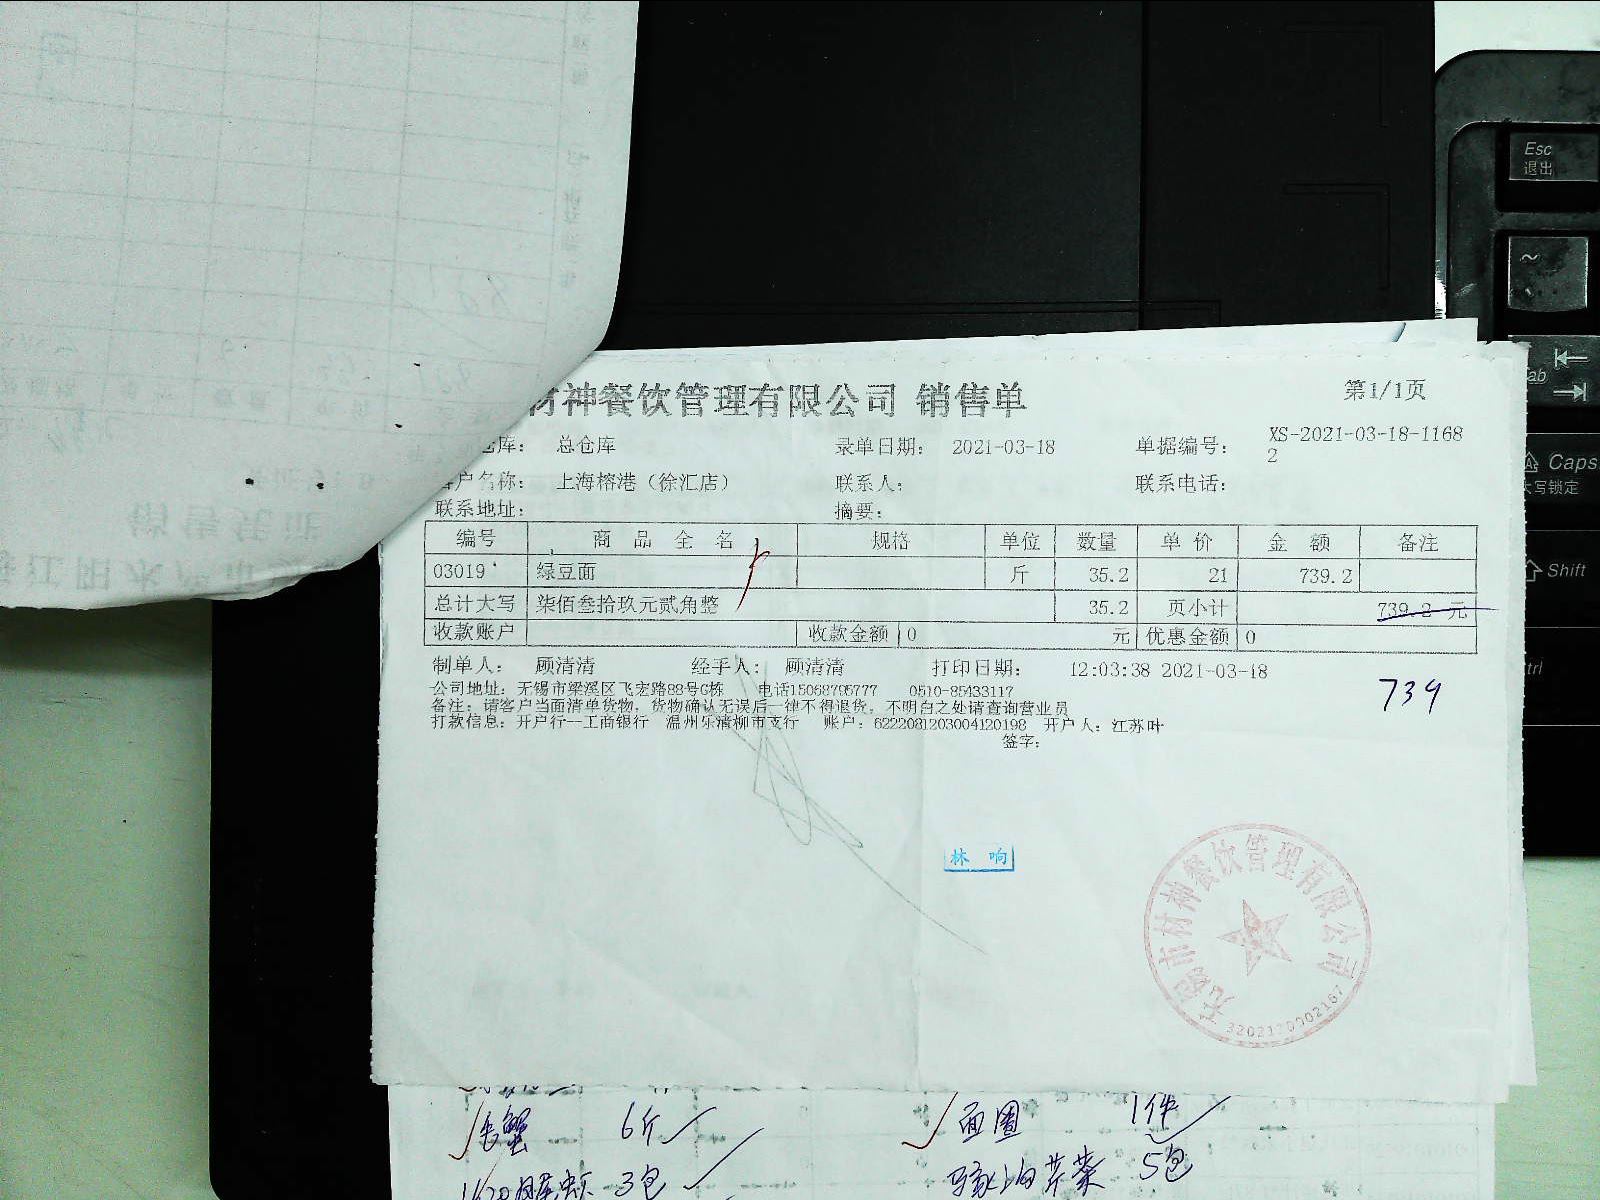 材神餐饮管理有限公司 销售单
第1/1页
仓库： 总仓库 录单日期： 2021-03-18 单据编号： XS-2021-03-18-1168
2
客户名称： 上海榕港（徐汇店） 联系人： 联系电话：
联系地址： 摘要：
编号 商品全名 规格 单位 数量 单价 金额 备注
03019 绿豆面 斤 35.2 21 739.2
总计大写 柒佰叁拾玖元贰角整 35.2 页小计 739.2 元
收款账户 收款金额 0 元 优惠金额 0
制单人： 顾清清 经手人： 顾清清 打印日期： 12:03:38 2021-03-18
739
公司地址：无锡市梁溪区飞宏路88号G栋 电话15068795777 0510-85433117
备注：请客户当面清单货物，货物确认无误后一律不得退货，不明白之处请查询营业员
打款信息：开户行—工商银行 温州乐清柳市支行 账户：6222081203004120198 开户人：江苏叶
签字：
林响
无锡市材神餐饮管理有限公司
3202130002167
蟹 6斤
面圈 1件
3包
芹菜 5包
Esc
退出
~
Tab
Caps
大写锁定
Shift